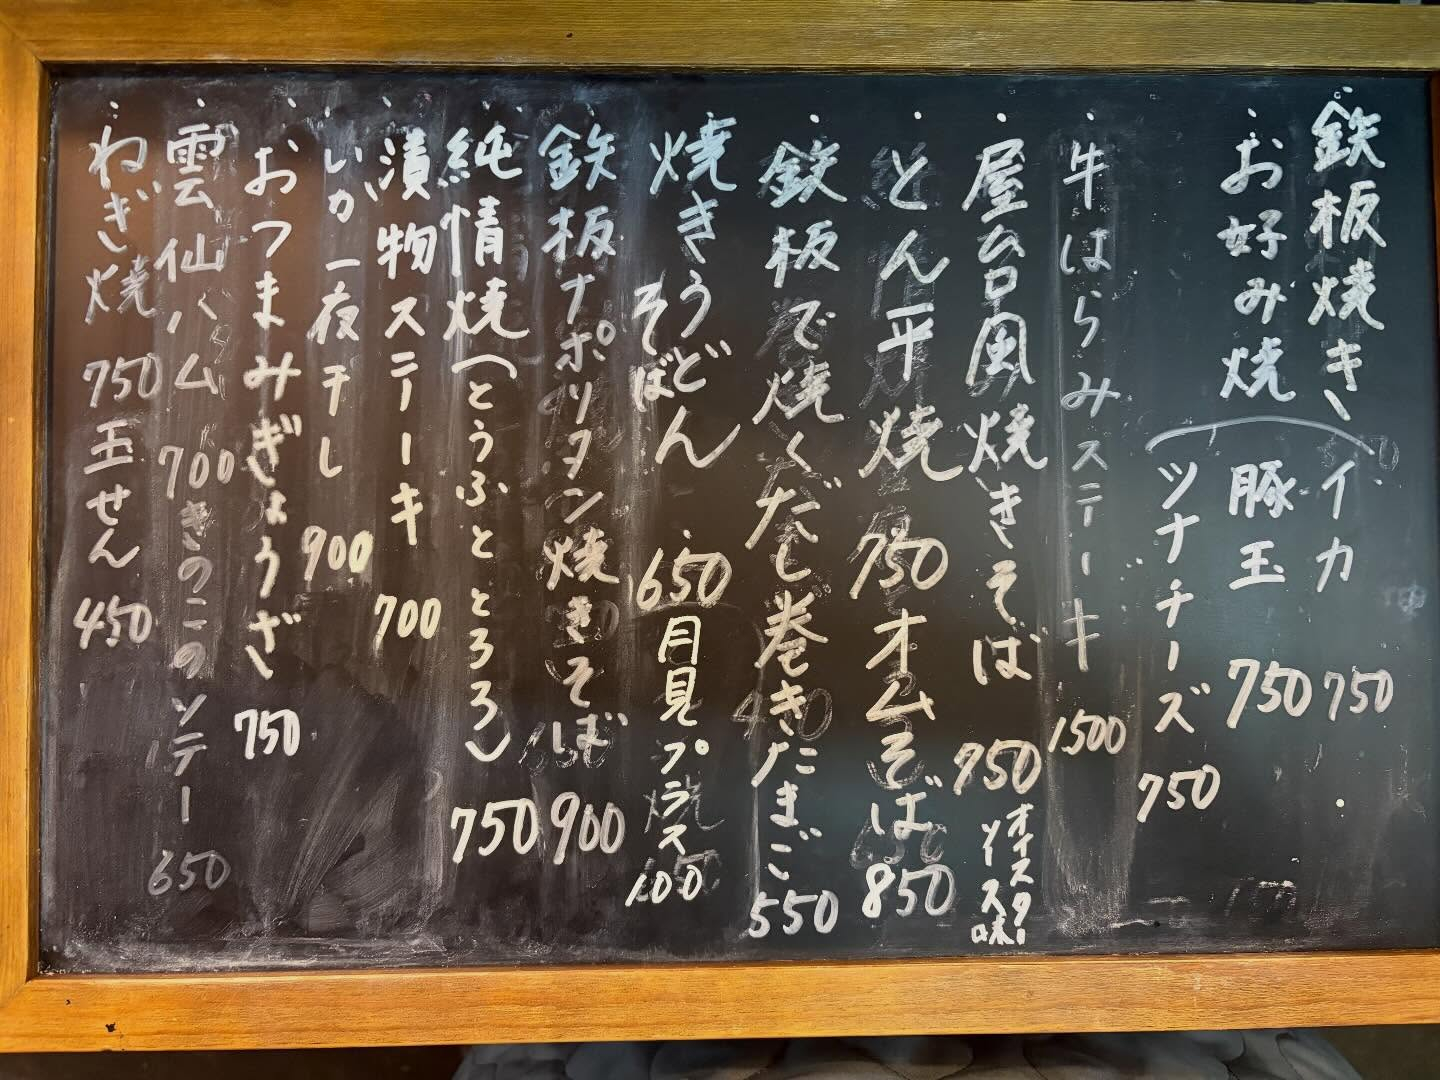 鉄板焼き イカ 750
お好み焼 豚玉 750
ツナチーズ 750
牛はらみステーキ 1500
屋台風焼きそば 750 オイスターソース味
とん平焼 750 オムそば 850
鉄板で焼くだし巻きたまご 550
焼きうどん 650 月見プラス 100
そば
鉄板ナポリタン焼きそば 900
純情焼(とうふととろろ) 750
漬物ステーキ 700
いか一夜干し 900
おつまみぎょうざ 750
雲仙ハム 700 きのこのソテー 650
ねぎ焼 750 玉せん 450